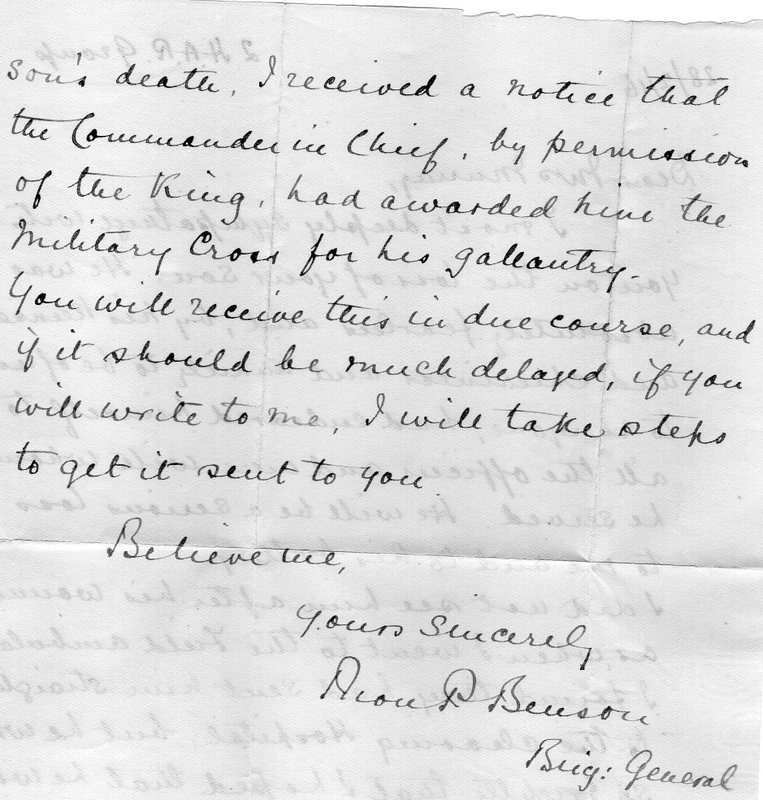 son's death, I received a notice that
the Commander in Chief, by permission
of the King, had awarded him the
Military Cross for his gallantry.
You will receive this in due course, and
if it should be much delayed, if you
will write to me, I will take steps
to get it sent to you.
Believe me,
Yours Sincerely
P Benson
Brig: General